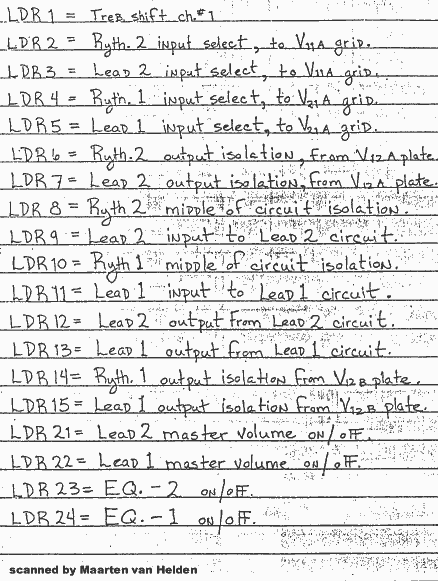 LDR 1 = Treb shift ch.#1
LDR 2 = Ryth. 2 input select, to V11A grid.
LDR 3 = Lead 2 input select, to V11A grid.
LDR 4 = Ryth. 1 input select, to V21A grid.
LDR 5 = Lead 1 input select, to V21A grid.
LDR 6 = Ryth. 2 output isolation, from V12A plate.
LDR 7 = Lead 2 output isolation, from V12A plate.
LDR 8 = Ryth 2 middle of circuit isolation.
LDR 9 = Lead 2 input to Lead 2 circuit.
LDR 10 = Ryth 1 middle of circuit isolation.
LDR 11 = Lead 1 input to Lead 1 circuit.
LDR 12 = Lead 2 output from Lead 2 circuit.
LDR 13 = Lead 1 output from Lead 1 circuit.
LDR 14 = Ryth. 1 output isolation from V12B plate.
LDR 15 = Lead 1 output isolation from V12B plate.
LDR 21 = Lead 2 master volume on/off.
LDR 22 = Lead 1 master volume on/off.
LDR 23 = EQ. - 2 on/off.
LDR 24 = EQ. - 1 on/off.
scanned by Maarten van Helden